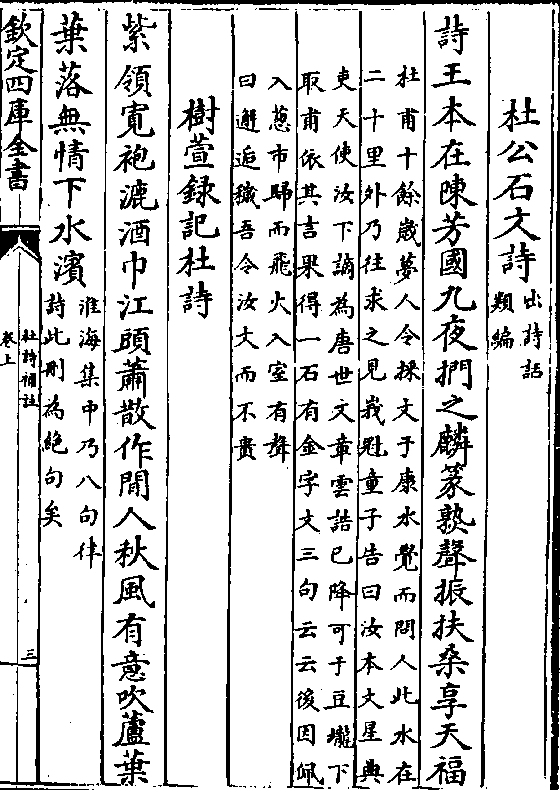 杜公石文詩
出詩話
類編
詩王本在陳芳國九夜捫之麟篆熟聲振扶桑享天福
杜甫十餘歲夢人令採文于康水覺而問人此水在
二十里外乃往求之見峩冠童子告曰汝本文星典
吏天使汝下謫為唐世文章雲誥已降可于豆壠下
取甫依其言果得一石有金字文三句云云後因佩
入蔥市歸而飛火入室有聲
曰邂逅穢吾令汝文而不貴
樹萱錄記杜詩
紫領寛袍漉酒巾江頭蕭散作閒人秋風有意吹蘆葉
葉落無情下水濱
淮海集中乃八句律
詩此刪為絶句矣
欽定四庫全書
杜詩補註
卷上
三